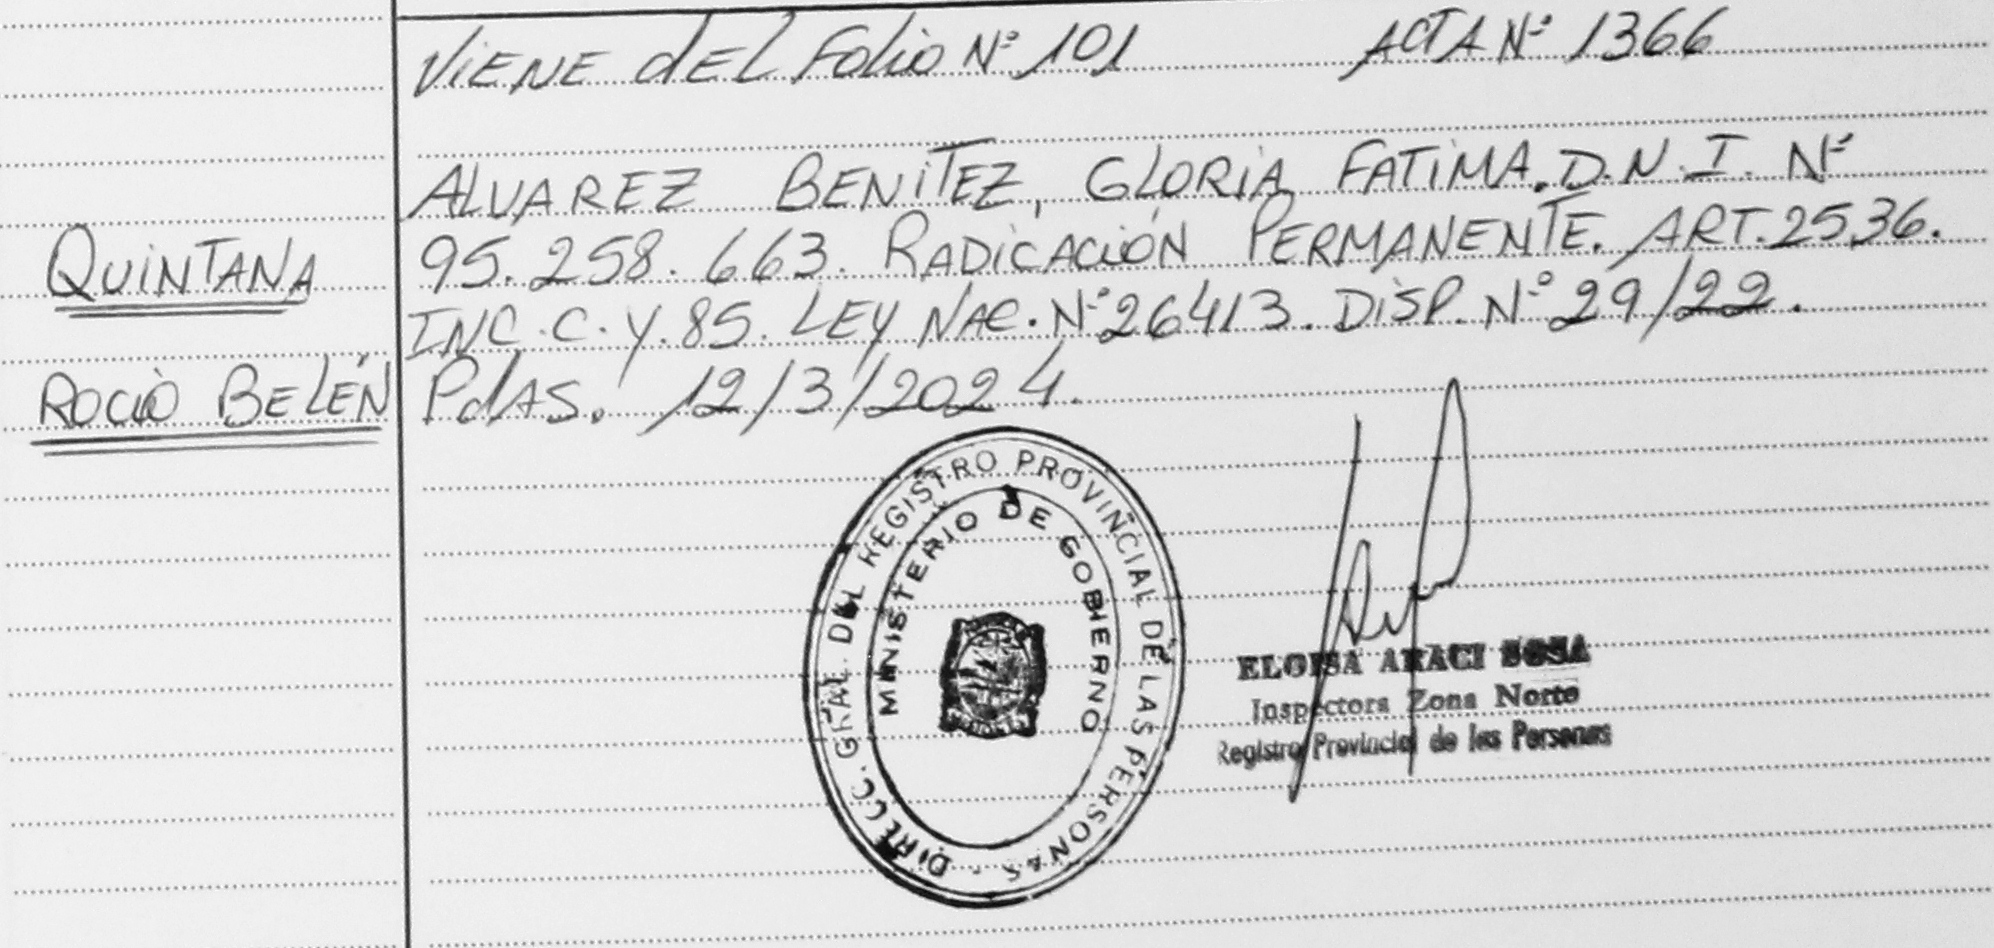 ViENE dEL Folio Nº 101 ACTA Nº 1366
ALVAREZ BENiTEZ, GLORiA FATiMA. D.N.I. Nº
QUiNTANA
95.258.663. RADiCACiÓN PERMANENTE. ART. 25,36.
INC. C. Y. 85. LEY NAC. Nº 26413. DiSP. Nº 29/22.
ROCiÓ BELÉN
PdAS. 12/3/2024.
DIRECC. GRAL. DEL REGISTRO PROVINCIAL DE LAS PERSONAS.
MINISTERIO DE GOBIERNO
ELOISA ARACI SOSA
Inspectora Zona Norte
Registro Provincial de las Personas